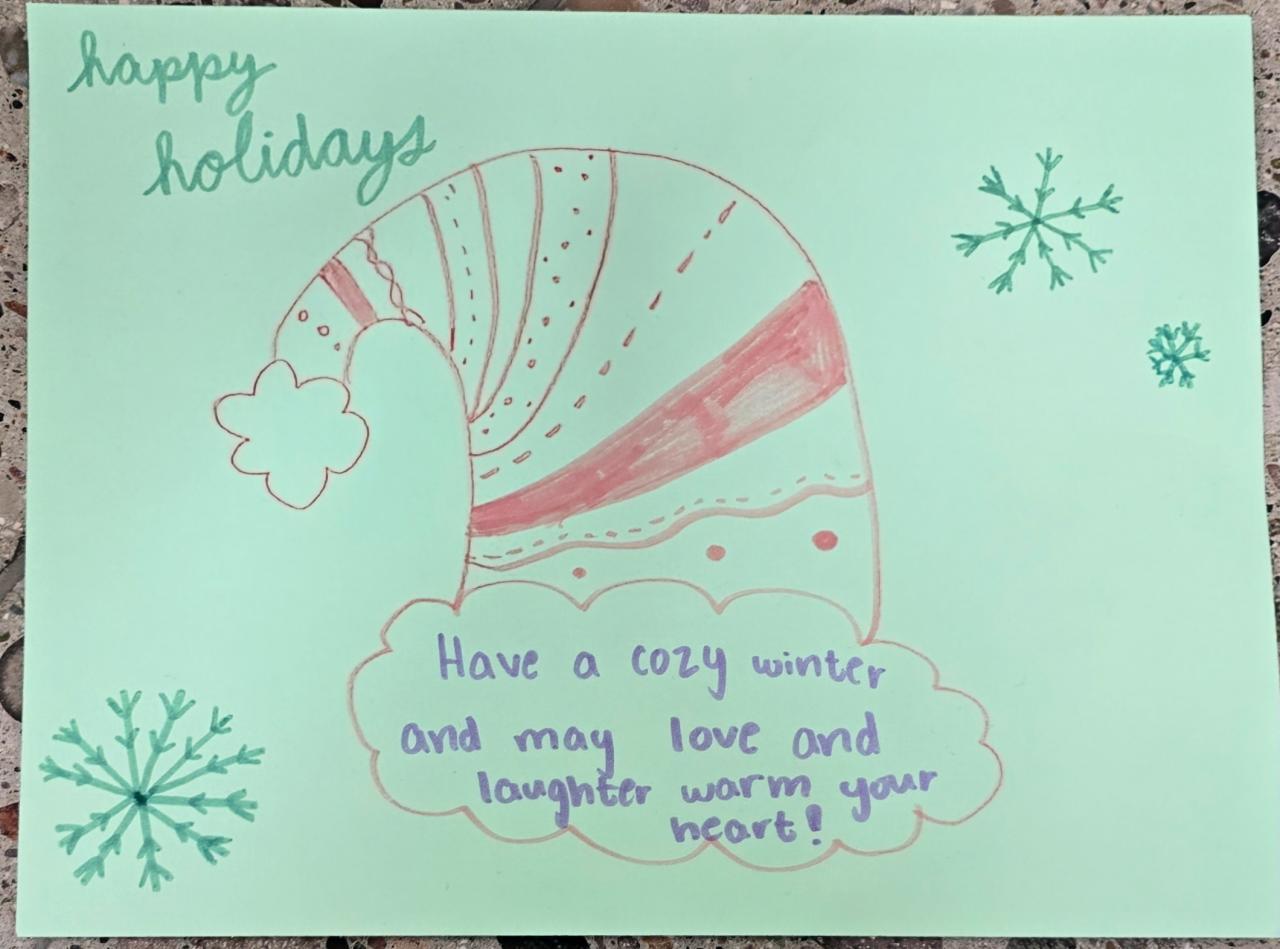 happy
holidays
Have a cozy winter
and may love and
laughter warm your
heart!